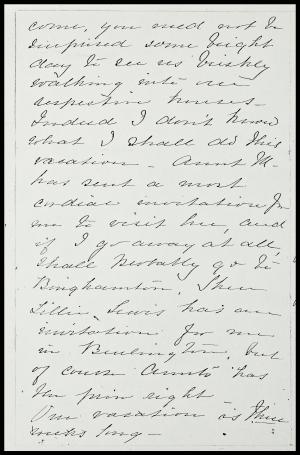 come, you need not be
surprised some bright
day to see us briskly
walking into our
respective houses -
Indeed I don't know
what I shall do this
vacation - Aunt M.
has sent a most
cordial invitation for
me to visit her, and
if I go away at all,
shall probably go to
Binghamton. Then
Lillie Lewis has an
invitation for me
in Burlington, but
of course Aunt's has
the prior right -
Our vacation is three
weeks long -